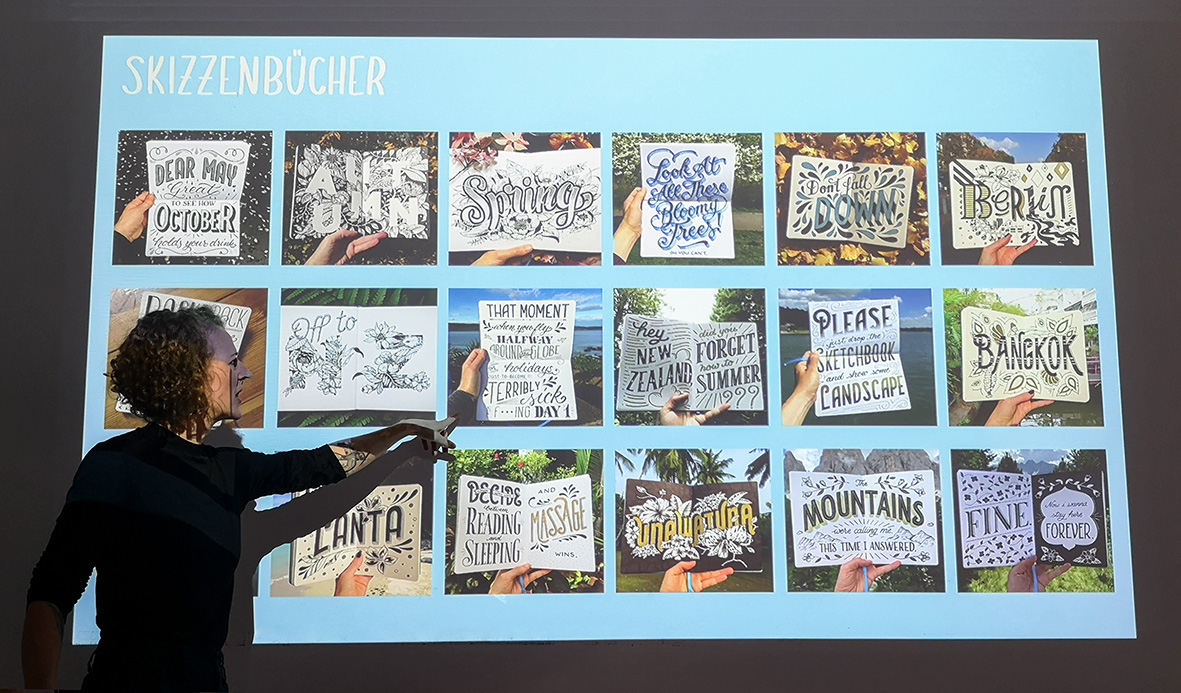 SKIZZENBÜCHER
DEAR MAY,
Great
TO SEE HOW
OCTOBER
holds your drink
AUT
UMN
Spring
Look At
All These
Bloomy
Trees
YOU CAN'T.
Don't fall
DOWN
BERLIN
PACK
Off to
NZ
THAT MOMENT
when you fly
HALFWAY
ROUND the GLOBE
holidays
JUST TO BECOME
TERRIBLY
sick
F***ING DAY 1
hey
NEW
ZEALAND
did you
FORGET
how to
SUMMER
???
PLEASE
just drop the
SKETCHBOOK
and show some
LANDSCAPE
BANGKOK
LANTA
DECIDE
between
READING
and
SLEEPING
AND
MASSAGE
WINS.
UNAWATUNA
The
MOUNTAINS
were calling me.
THIS TIME I ANSWERED.
FINE
Now i wanna
stay here
FOREVER.